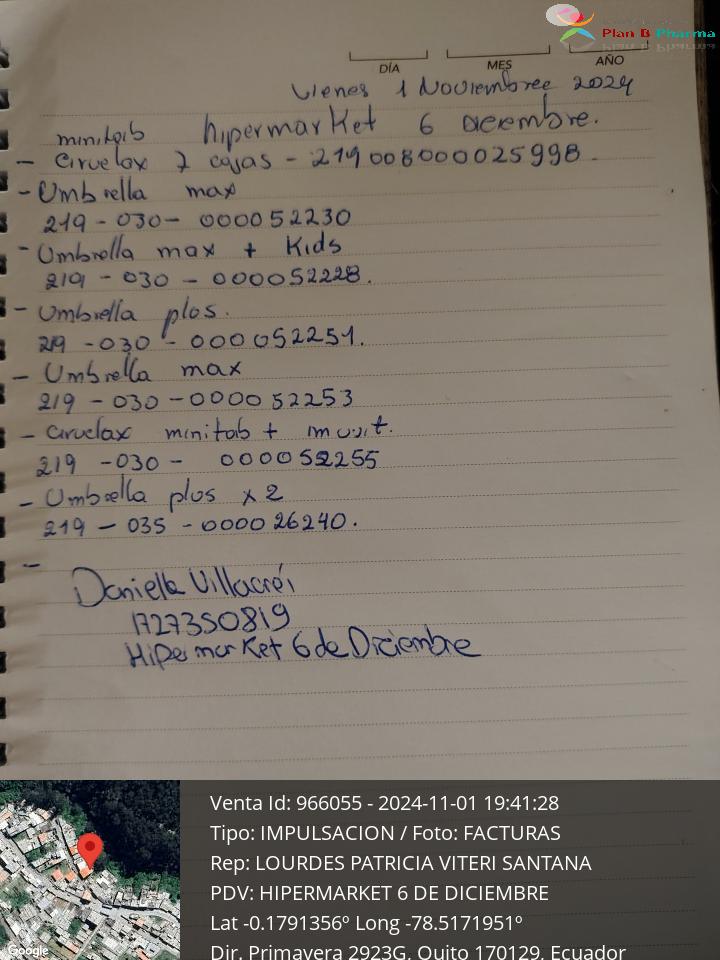 Plan B Pharma
DÍA MES AÑO
Vienes 1 Noviembree 2024
minitab hipermarket 6 Diciembre.
- Ciruelax 2 cajas - 219008000025998.
- Umbrella max
219-030-000052230
- Umbrella max + Kids
219-030-000052228.
- Umbrella plos.
219-030-000052251.
- Umbrella max
219-030-000052253
- Ciruelax minitab +
219-030- 000052255
- Umbrella plus x2
219-035-000026240.
-
Daniella Villacréi
1727350819
Hipermarket 6 de Diciembre
Venta Id: 966055 - 2024-11-01 19:41:28
Tipo: IMPULSACION / Foto: FACTURAS
Rep: LOURDES PATRICIA VITERI SANTANA
PDV: HIPERMARKET 6 DE DICIEMBRE
Lat -0.1791356º Long -78.5171951º
Dir. Primavera 2923G, Quito 170129, Ecuador
Google